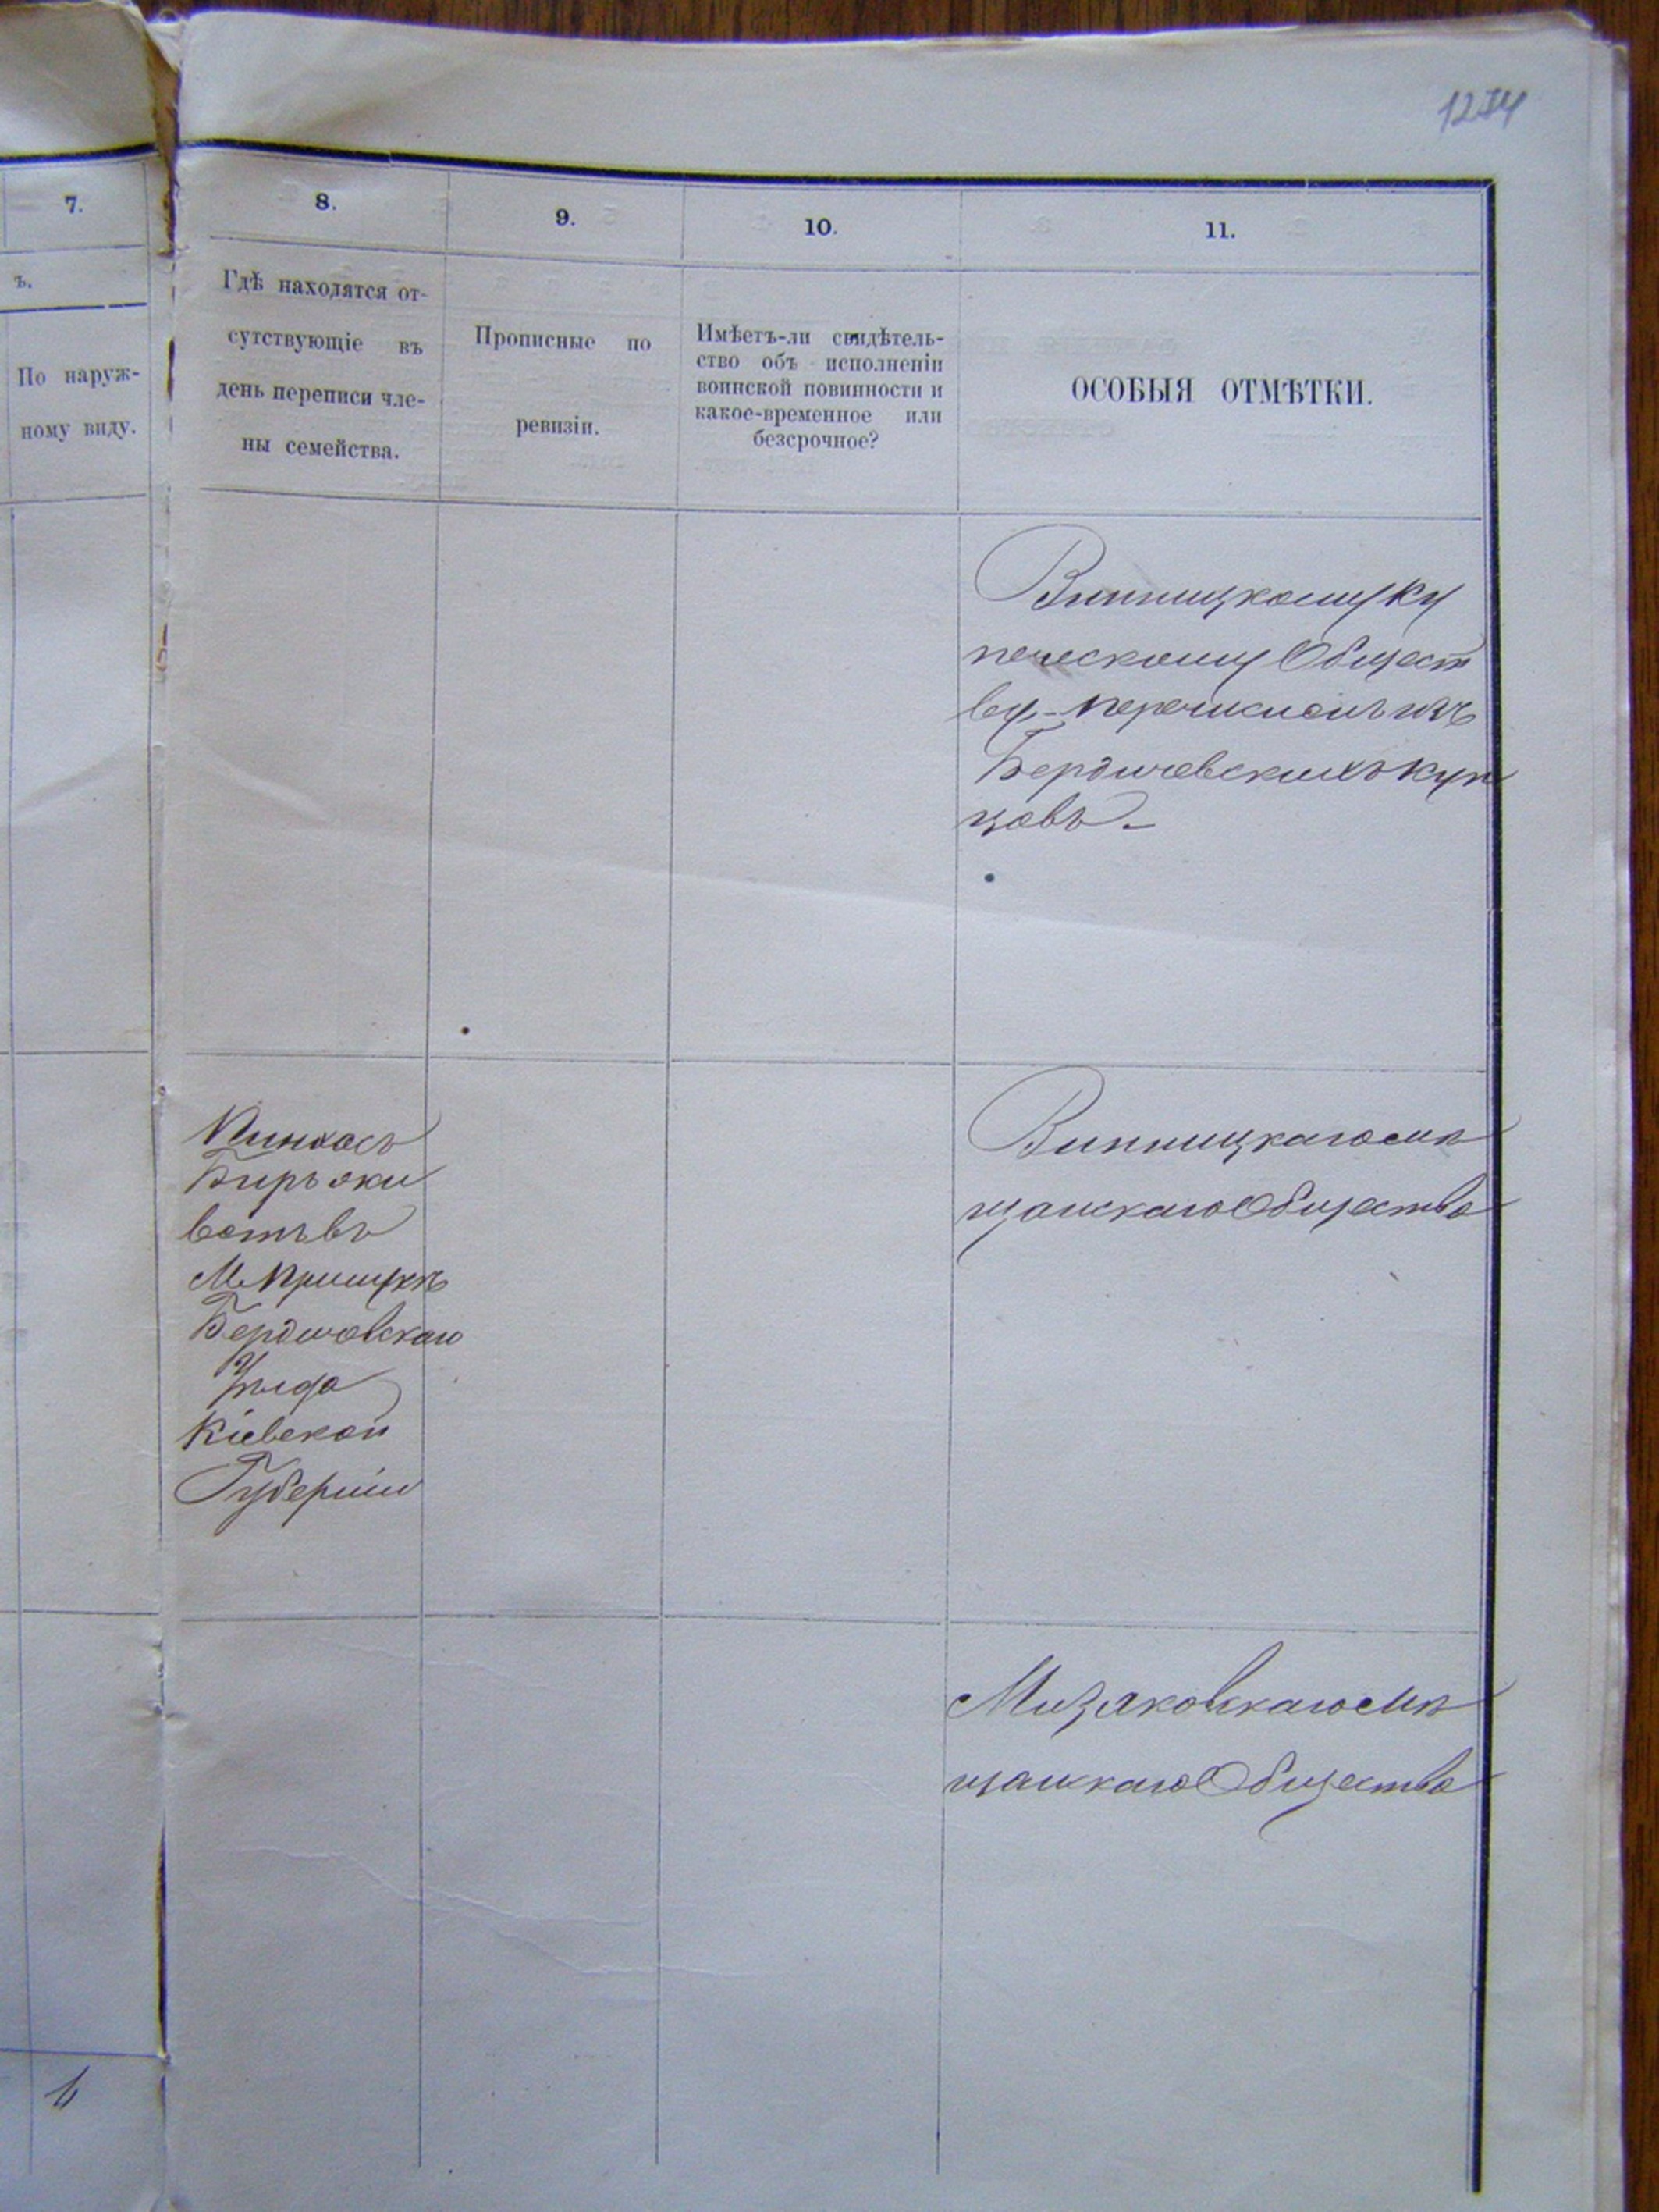 1274
7.
8.
9.
10.
11.
ъ.
По наруж-
ному виду.
Гдѣ находятся от-
сутствующіе въ
день переписи чле-
ны семейства.
Прописные по
ревизіи.
Имѣетъ-ли свидѣтель-
ство объ исполненіи
воинской повинности и
какое-временное или
безсрочное?
ОСОБЫЯ ОТМѢТКИ.
Винницкому ку
печескому Общест
ву - перечисленъ изъ
Бердичевскихъ куп
цовъ.-
Пинхасъ
ветъ въ
М. Прилукѣ
Бердичевскаго
Уѣзда
Кіевской
Губерніи
Винницкаго мѣ
щанскаго Общества
Мизяковскаго мѣ
щанскаго Общества